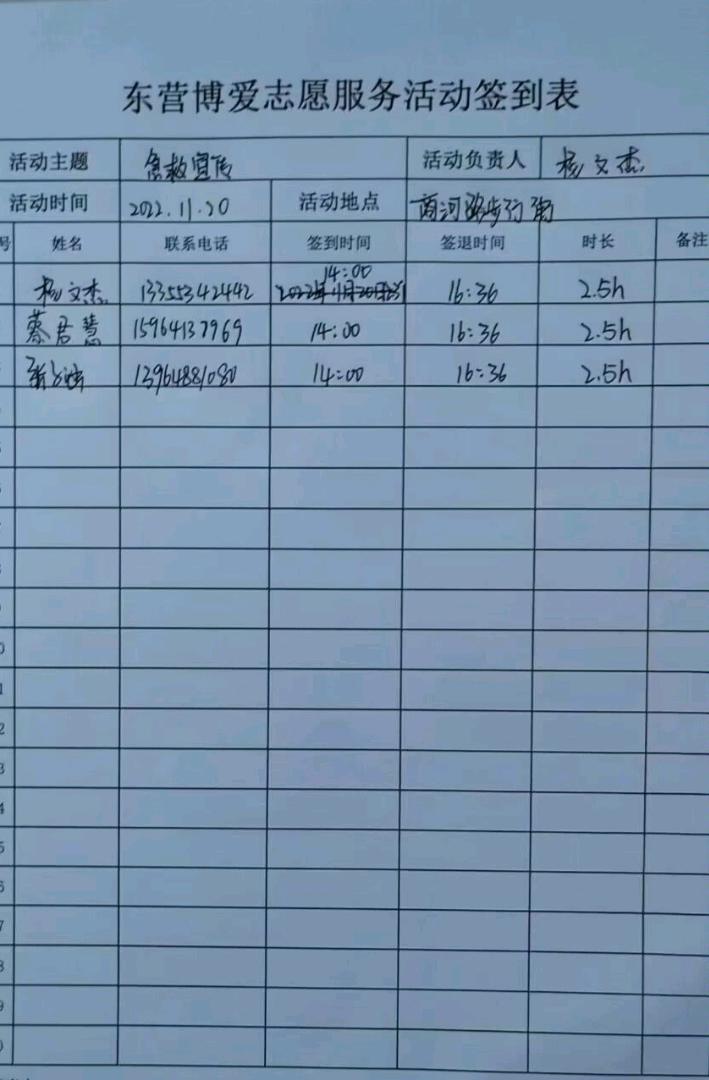 东营博爱志愿服务活动签到表
活动主题 急救宣传 活动负责人 杨文杰
活动时间 2022.11.20 活动地点 商河路步行街
号 姓名 联系电话 签到时间 签退时间 时长 备注
杨文杰 13355342442 14:00 16:36 2.5h
蔡君慧 15964137969 14:00 16:36 2.5h
13964881080 14:00 16:36 2.5h
0
1
2
3
4
5
6
7
8
9
0